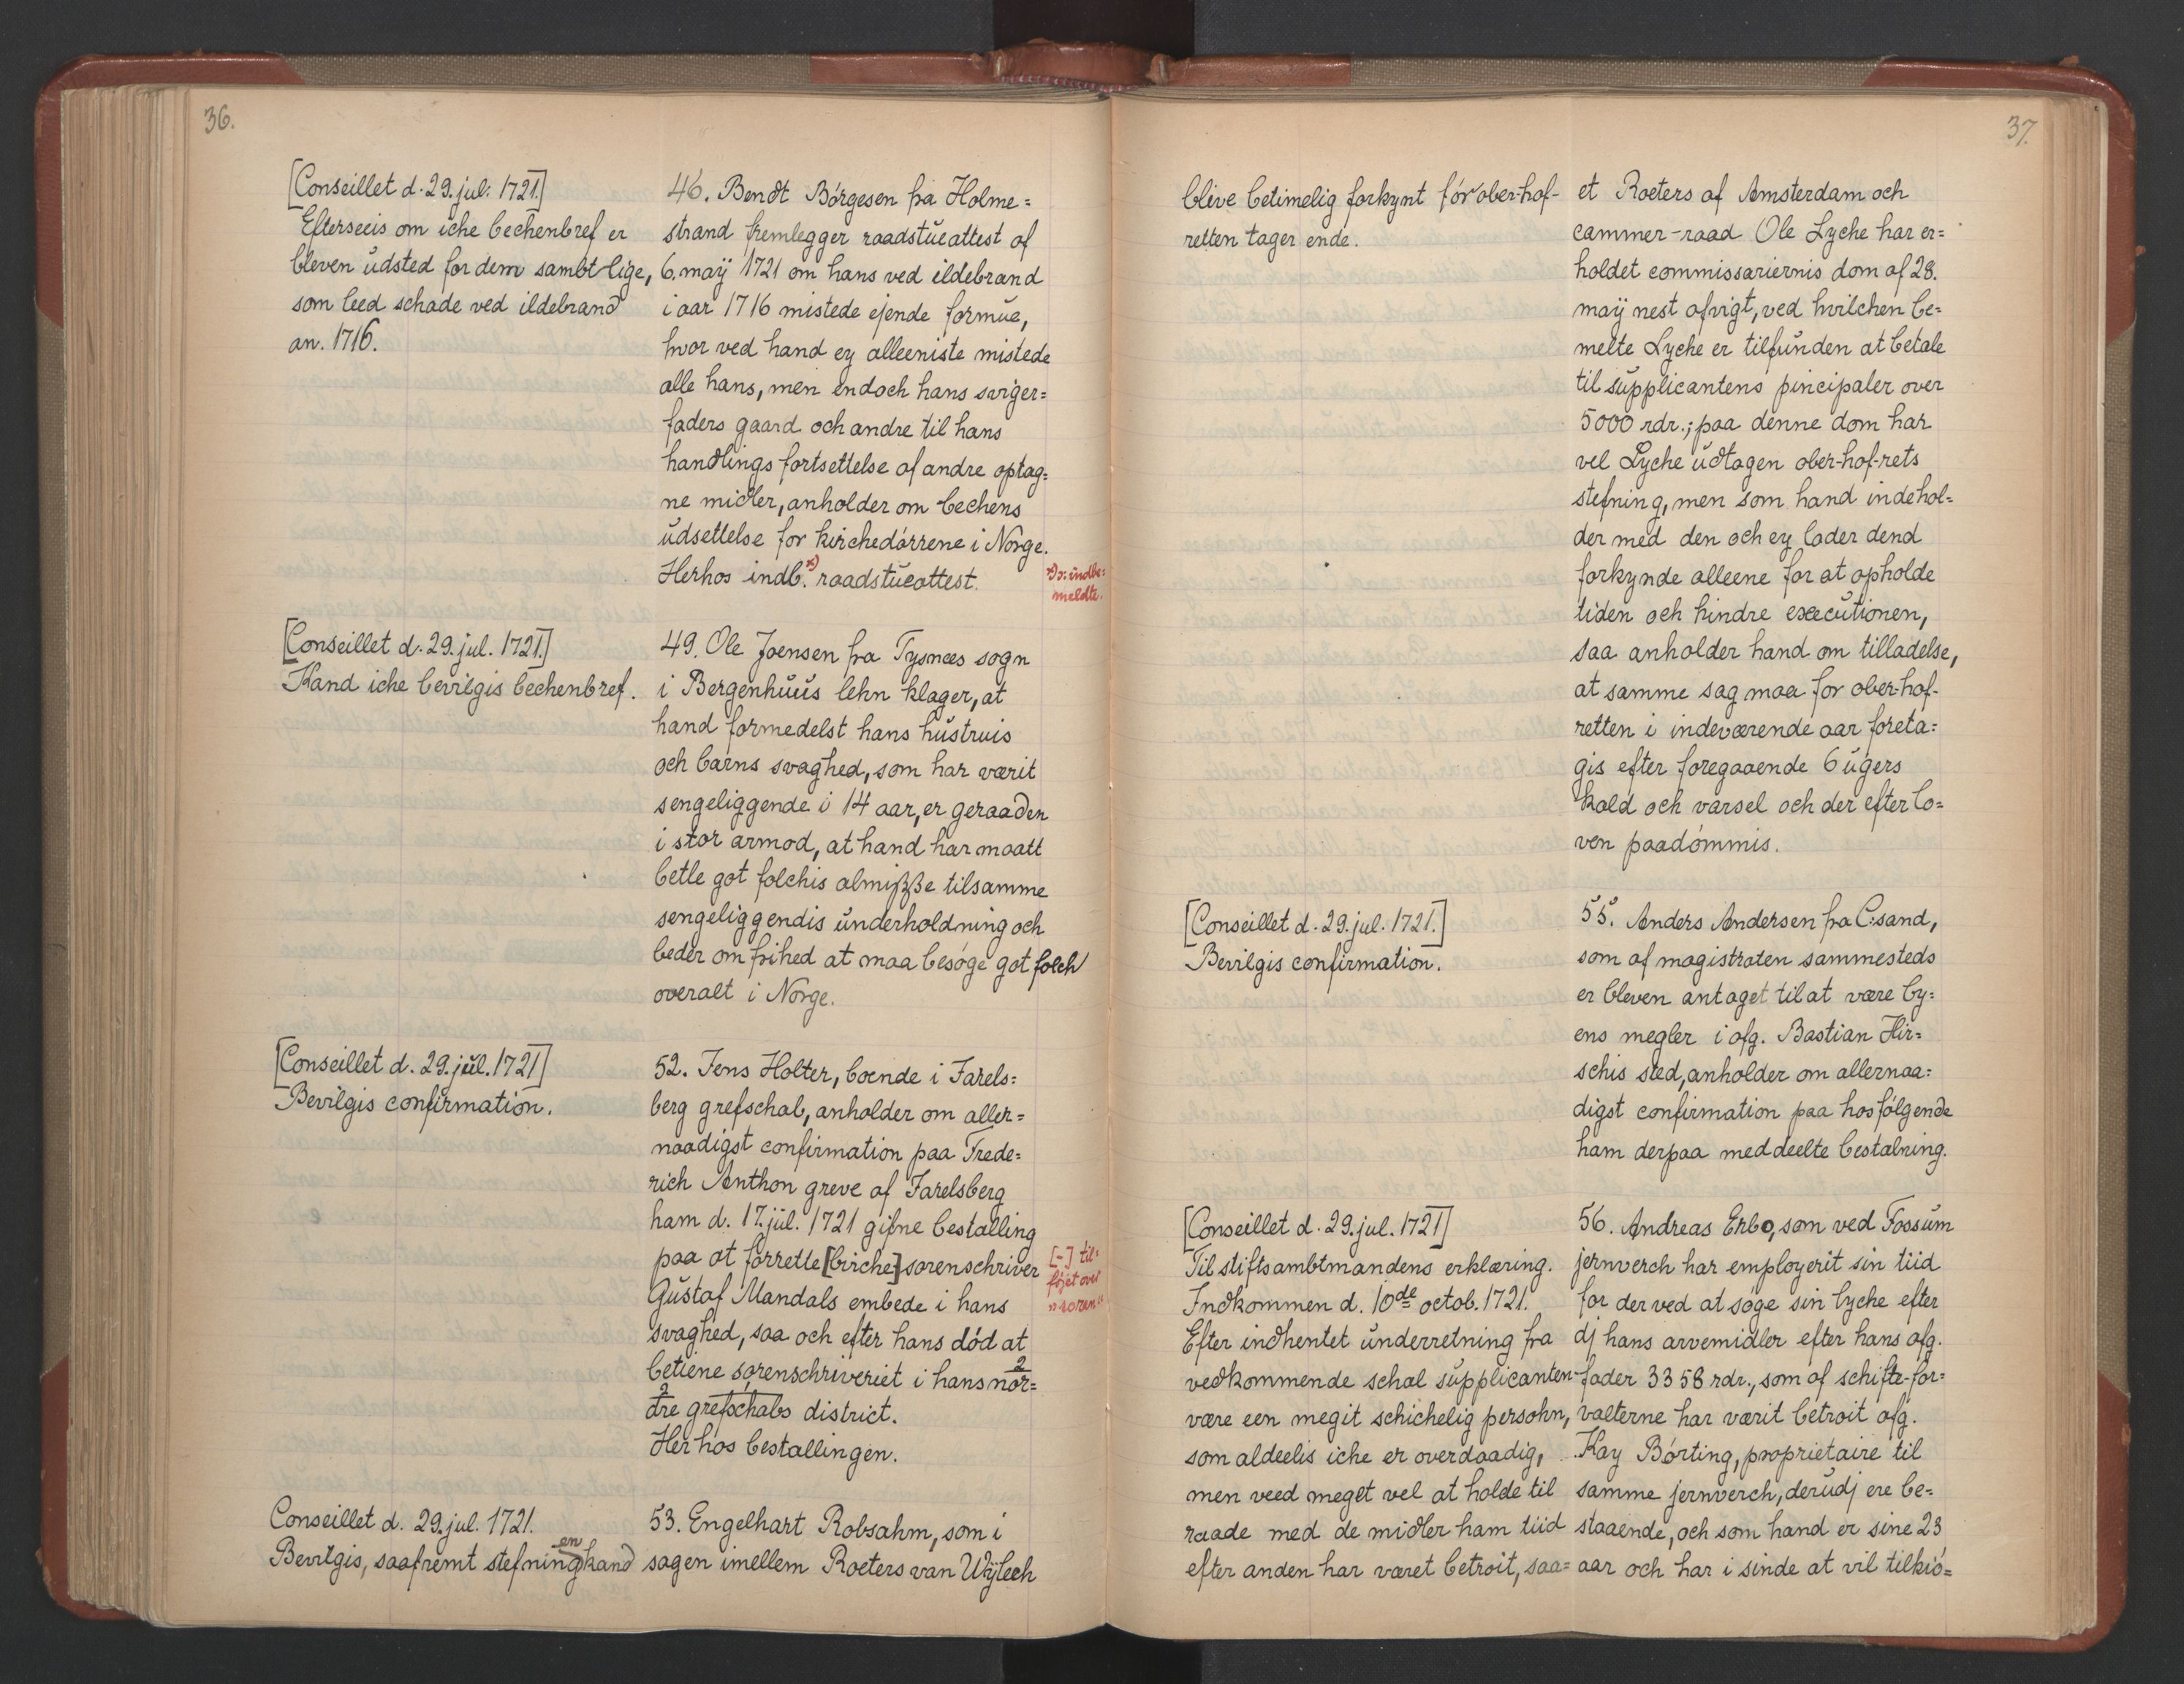 36.
[Conseillet d. 29. jul. 1721.]
Efterseeis om iche bechenbref er
bleven udsted for dem sambtlige,
som leed schade ved ildebrand
an. 1716.
46. Bendt Børgesen fra Holme=
strand fremlegger raadstueattest af
6. maÿ 1721 om hans ved ildebrand
i aar 1716 mistede ejende formue,
hvor ved hand ey alleeniste mistede
alle hans, men endoch hans sviger=
faders gaard och andre til hans
handlings fortsettelse af andre optag=
ne midler, anholder om bechens
udsettelse for kirchedørrene i Norge.
Herhos indb. *) raadstueattest.
*) ɔ: indbe=
meldte.
[Conseillet d. 29. jul. 1721.]
Kand iche bevilgis bechenbref.
49. Ole Joensen fra Tysnes sogn
i Bergenhuus lehn klager, at
hand formedelst hans hustruis
och barns svaghed, som har værit
sengeliggende i 14 aar, er geraaden
i stor armod, at hand har maatt
betle got folchis almisse til samme
sengeliggendis underholdning och
beder om frihed at maa besøge got folch
overalt i Norge.
[Conseillet d. 29. jul. 1721]
Bevilgis confirmation.
52. Jens Holter, boende i Jarels=
berg grefschab, anholder om aller=
naadigst confirmation paa Frede=
rich Anthon greve af Jarelsberg
ham d. 17. jul. 1721 gifne bestalling
paa at forrette [birche] sorenschriver
Gustaf Mandals embede i hans
svaghed, saa och efter hans død at
betiene sorenschriveriet i hans nor=
dre grefschabs district.
Herhos bestallingen.
[-] til=
føjet over
"soren"
2
2
Conseillet d. 29. jul. 1721.
Bevilgis, saafremt stefningen kand
53. Engelhart Robsahm, som i
sagen imellem Roeters van Wÿlech
37.
blive betimelig forkynt før ober-hof-
retten tager ende.
et Roeters af Amsterdam och
cammer-raad Ole Lyche har er=
holdet commissariernis dom af 28.
maÿ nest afvigt, ved hvilchen be=
melte Lyche er tilfunden at betale
til supplicantens pincipaler over
5000 rdr.; paa denne dom har
vel Lyche udtagen ober-hof-rets
stefning, men som hand indehol=
der med den och ey lader dend
forkynde alleene for at opholde
tiden och hindre executionen,
saa anholder hand om tilladelse,
at samme sag maa for ober-hof-
retten i indeværende aar foreta=
gis efter foregaaende 6 ugers
kald och varsel och der efter lo=
ven paadømmis.
[Conseillet d. 29. jul. 1721.]
Bevilgis confirmation.
55. Anders Andersen fra C:sand,
som af magistraten sammesteds
er bleven antaget til at være by=
ens megler i afg. Bastian Hir=
schis sted, anholder om allernaa=
digst confirmation paa hosfølgende
ham derpaa meddeelte bestalning.
[Conseillet d. 29. jul. 1721]
Til stiftsambtmandens erklæring.
Indkommen d. 10de octob. 1721.
Efter indhentet underretning fra
vedkommende schal supplicanten
være een megit schichelig persohn,
som aldeelis iche er overdaadig,
men veed meget vel at holde til
raade med de midler ham tiid
efter anden har været betroit, saa=
56. Andreas Erbo, som ved Fossum
jernverch har employerit sin tiid
for der ved at søge sin lyche efter
dj hans arvemidler efter hans afg.
fader 3358 rdr., som af schifte-for=
valterne har værit betroit afg.
Kay Børting, proprietaire til
samme jernverch, derudj ere be=
staaende, och som hand er sine 23
aar och har i sinde at vil tilkiø=